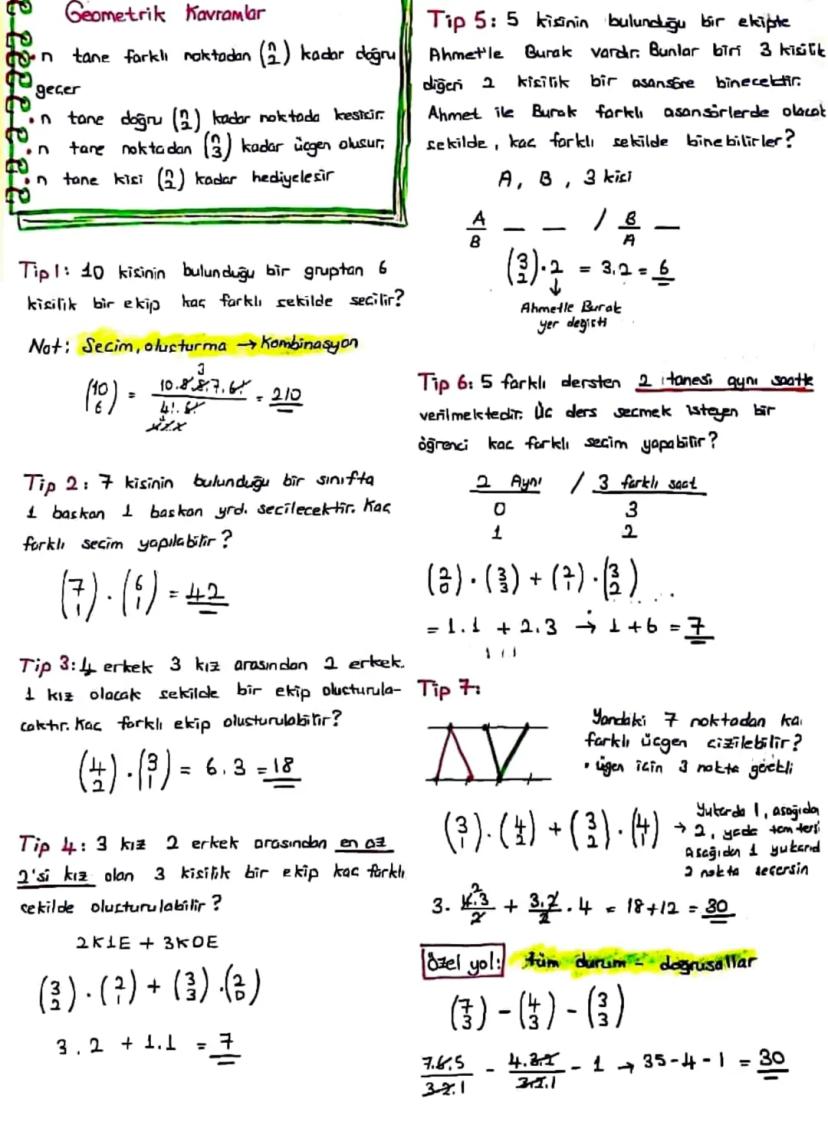 Geometrik Kavramlar
• n tane farklı noktadan (n 2) kadar doğru
geçer
• n tane doğru (n 2) kadar noktada kesişir.
• n tane noktadan (n 3) kadar üçgen oluşur.
• n tane kişi (n 2) kadar hediyeleşir
Tip 1: 10 kişinin bulunduğu bir gruptan 6
kişilik bir ekip kaç farklı şekilde seçilir?
Not: Seçim, oluşturma → Kombinasyon
(10 6) = 10.9.8.7.6! / 4!.6! = 210
Tip 2: 7 kişinin bulunduğu bir sınıfta
1 başkan 1 başkan yrd. seçilecektir. Kaç
farklı seçim yapılabilir?
(7 1) . (6 1) = 42
Tip 3: 4 erkek 3 kız arasından 2 erkek.
1 kız olacak şekilde bir ekip oluşturula-
caktır. Kaç farklı ekip oluşturulabilir?
(4 2) . (3 1) = 6.3 = 18
Tip 4: 3 kız 2 erkek arasından en az
2'si kız olan 3 kişilik bir ekip kaç farklı
şekilde oluşturulabilir?
2K1E + 3K0E
(3 2) . (2 1) + (3 3) . (2 0)
3.2 + 1.1 = 7
Tip 5: 5 kişinin bulunduğu bir ekipte
Ahmet'le Burak vardır. Bunlar biri 3 kişilik
diğeri 2 kişilik bir asansöre binecektir.
Ahmet ile Burak farklı asansörlerde olacak
şekilde, kaç farklı şekilde binebilirler?
A, B, 3 kişi
A _ _ / B _
B A
(3 2) . 2 = 3.2 = 6
↓
Ahmetle Burak
yer değişti
Tip 6: 5 farklı dersten 2 tanesi aynı saatte
verilmektedir. Üç ders seçmek isteyen bir
öğrenci kaç farklı seçim yapabilir?
2 Aynı / 3 farklı saat
0 3
1 2
(2 0) . (3 3) + (2 1) . (3 2)
= 1.1 + 2.3 → 1+6 = 7
Tip 7:
Yandaki 7 noktadan
farklı üçgen çizilebilir?
• üçgen için 3 nokta gerekli
(3 1) . (4 2) + (3 2) . (4 1) →
Yukarda 1, aşağıda
2, yada tam tersi
Aşağıdan 1 yukarıd
2 nokta seçersin
3. 4.3/2 + 3.2/2 . 4 = 18+12 = 30
Özel yol: tüm durum - doğrusallar
(7 3) - (4 3) - (3 3)
7.6.5/3.2.1 - 4.3.2/3.2.1 - 1 → 35-4-1 = 30